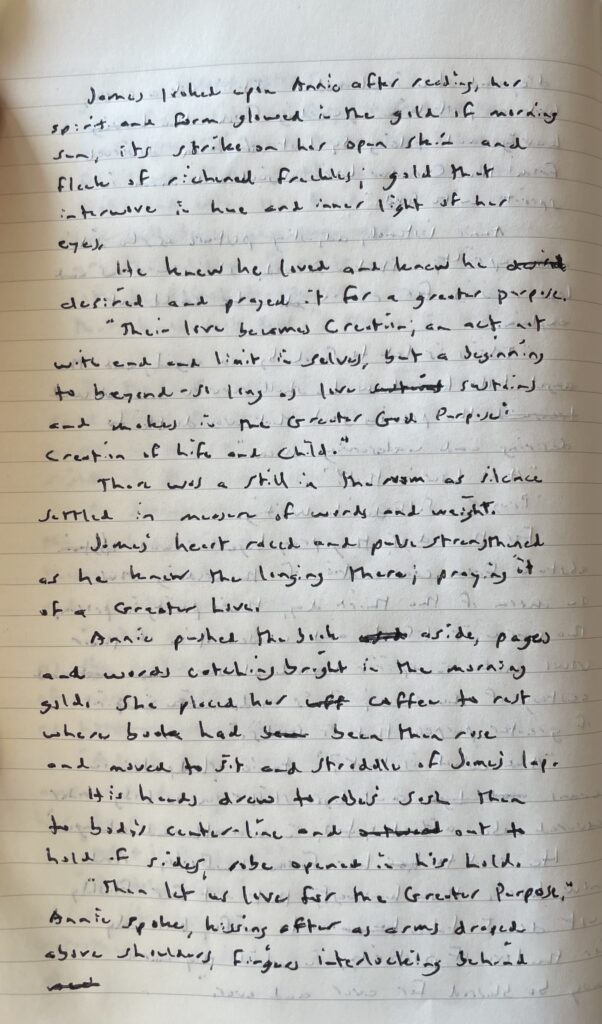 James looked upon Annie after reading, her
spirit and form glowed in the gold of morning
sun, its strike on her open skin and
fleck of richened freckles; gold that
interwove in hue and inner light of her
eyes.
He knew he loved and knew he
desired and prayed it for a greater purpose.
"Their love becomes Creation; an act not
with end and limit in selves, but a beginning
to beyond - so long as love sustains
and makes in the Greater Good Purpose:
Creation of Life and Child."
There was a still in the room as silence
settled in measure of words and weight.
James' heart raced and pulse strengthened
as he knew the longing there; praying it
of a Greater Love.
Annie pushed the book aside, pages
and words catching bright in the morning
gold. She placed her coffee to rest
where book had been then rose
and moved to sit and straddle of James' lap.
His hands drew to robe's sash then
to body's center-line and out to
hold of sides, robe opened in his hold.
"Then let us love for the Greater Purpose,"
Annie spoke, kissing after as arms draped
above shoulders, fingers interlocking behind